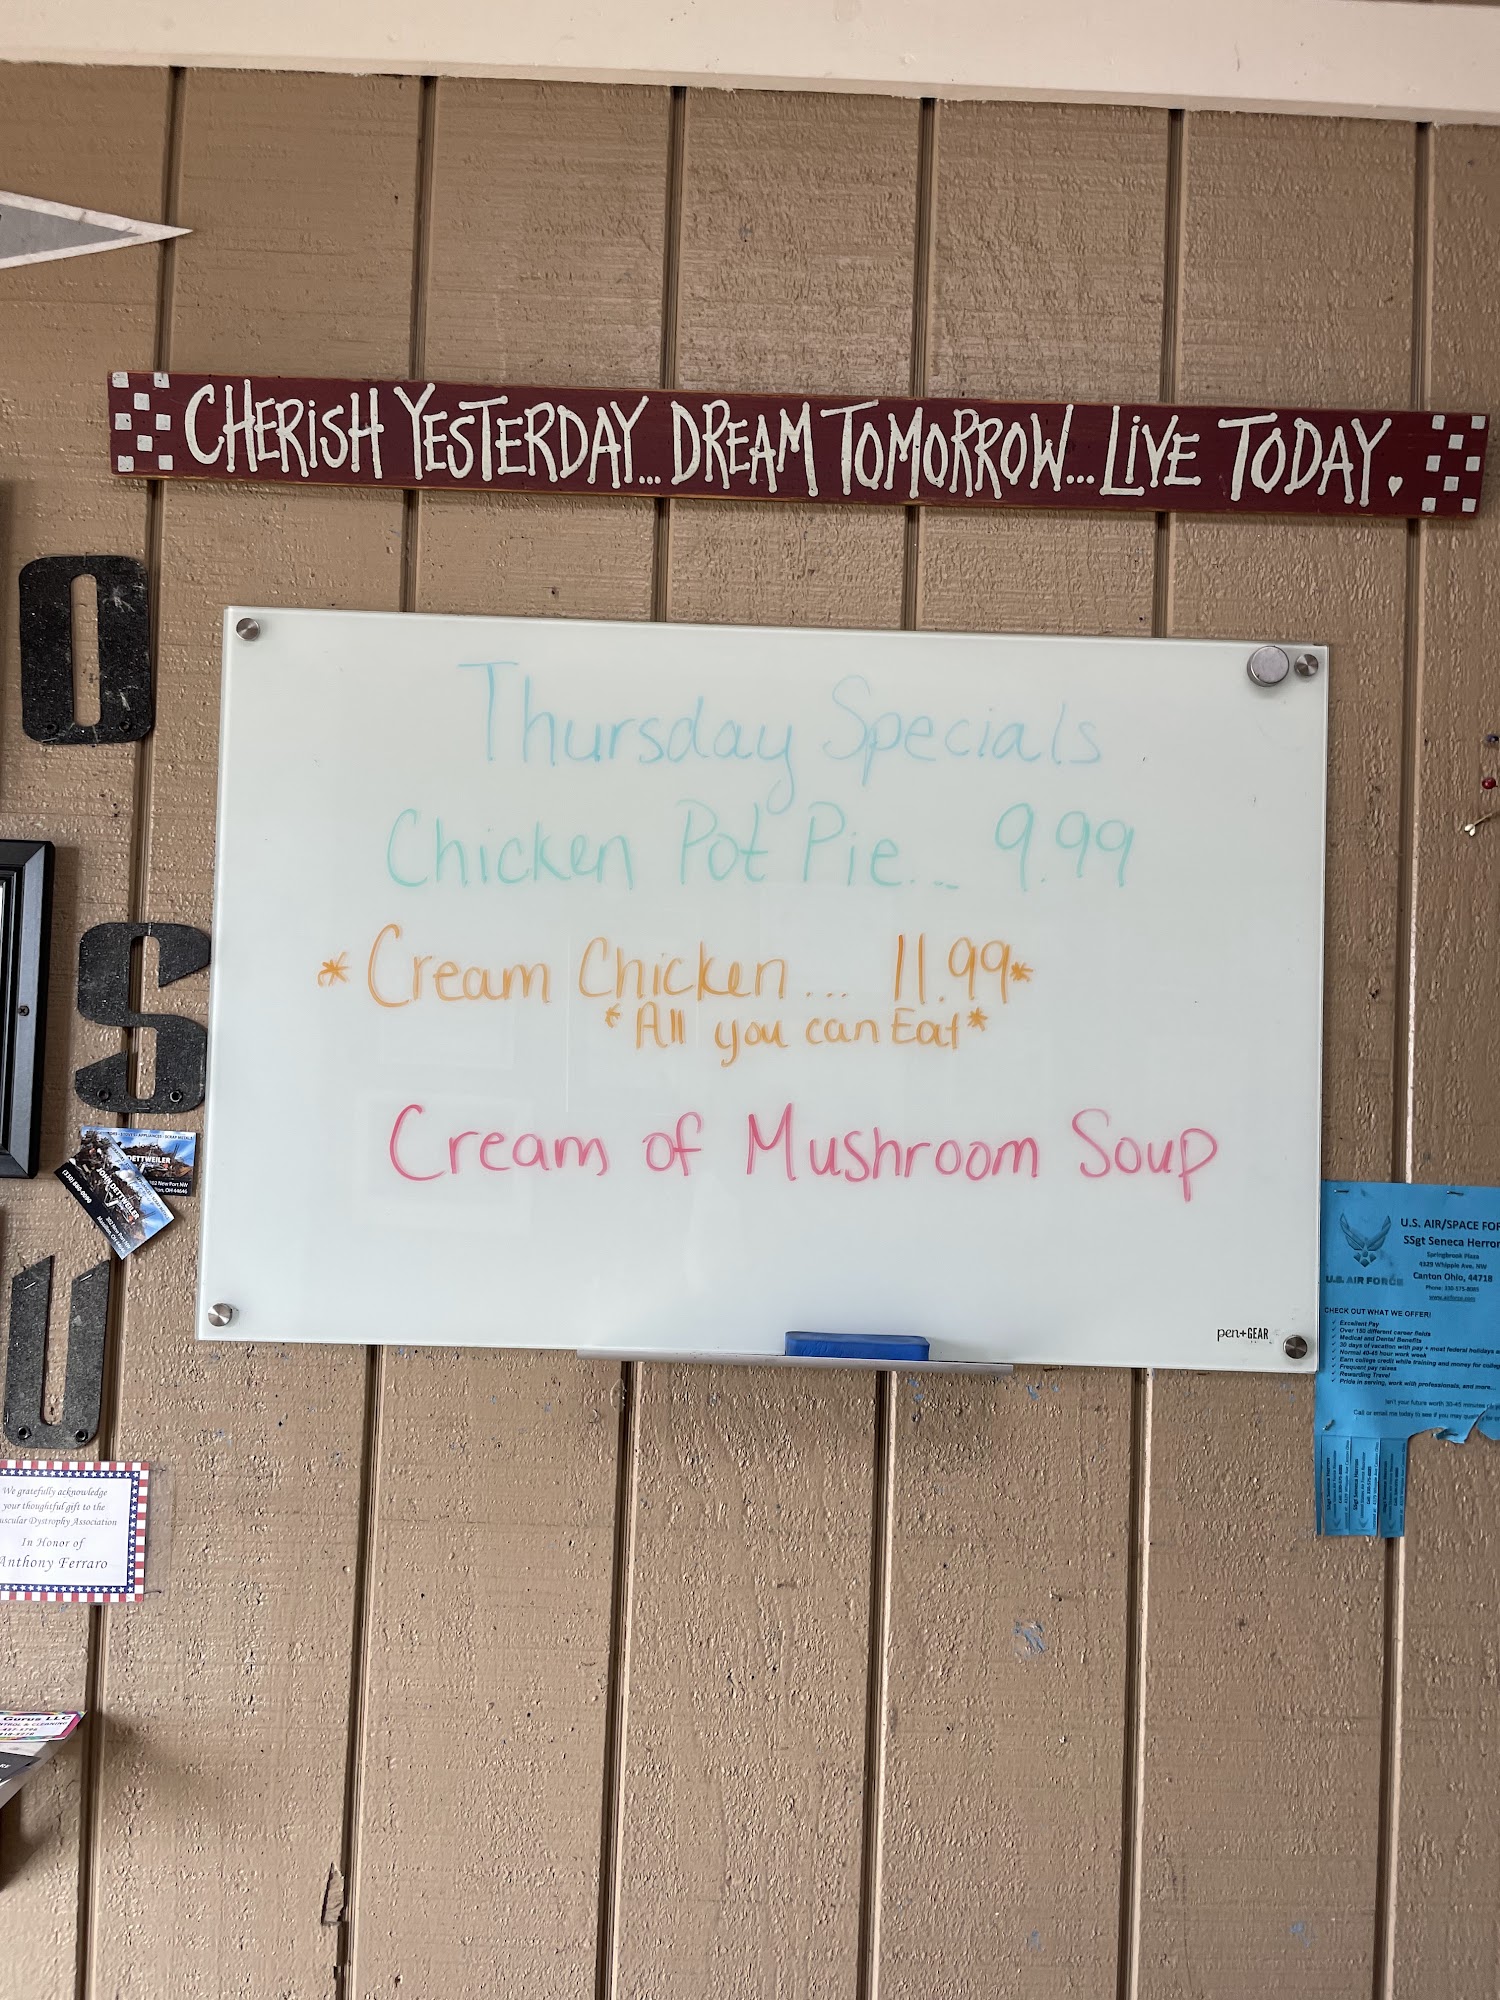 CHERISH YESTERDAY... DREAM TOMORROW... LIVE TODAY.
Thursday Specials
Chicken Pot Pie... 9.99
*Cream Chicken... 11.99*
*All you can Eat*
Cream of Mushroom Soup
pen+GEAR
O
S
U
DETTWEILER
JOHN DETTWEILER
(330) 880-0090
We gratefully acknowledge
your thoughtful gift to the
Dystrophy Association
In Honor of
Anthony Ferraro
Gurus LLC
& CLEANING
U.S. AIR/SPACE
SSgt Seneca Herron
Springbrook Plaza
4329 Whipple Ave. NW
U.S. AIR FORCE
Canton Ohio, 44718
Phone: 330-575-8085
www.airforce.com
CHECK OUT WHAT WE OFFER!
Excellent Pay
Over 150 different career fields
Medical and Dental Benefits
30 days of vacation with pay + most federal holidays
Normal 40-45 hour work week
Earn college credit while training and money for
Frequent pay raises
Rewarding Travel
Pride in serving, work with professionals, and more...
Isn't your future worth 30-45 minutes
Call or email me today to see if you may